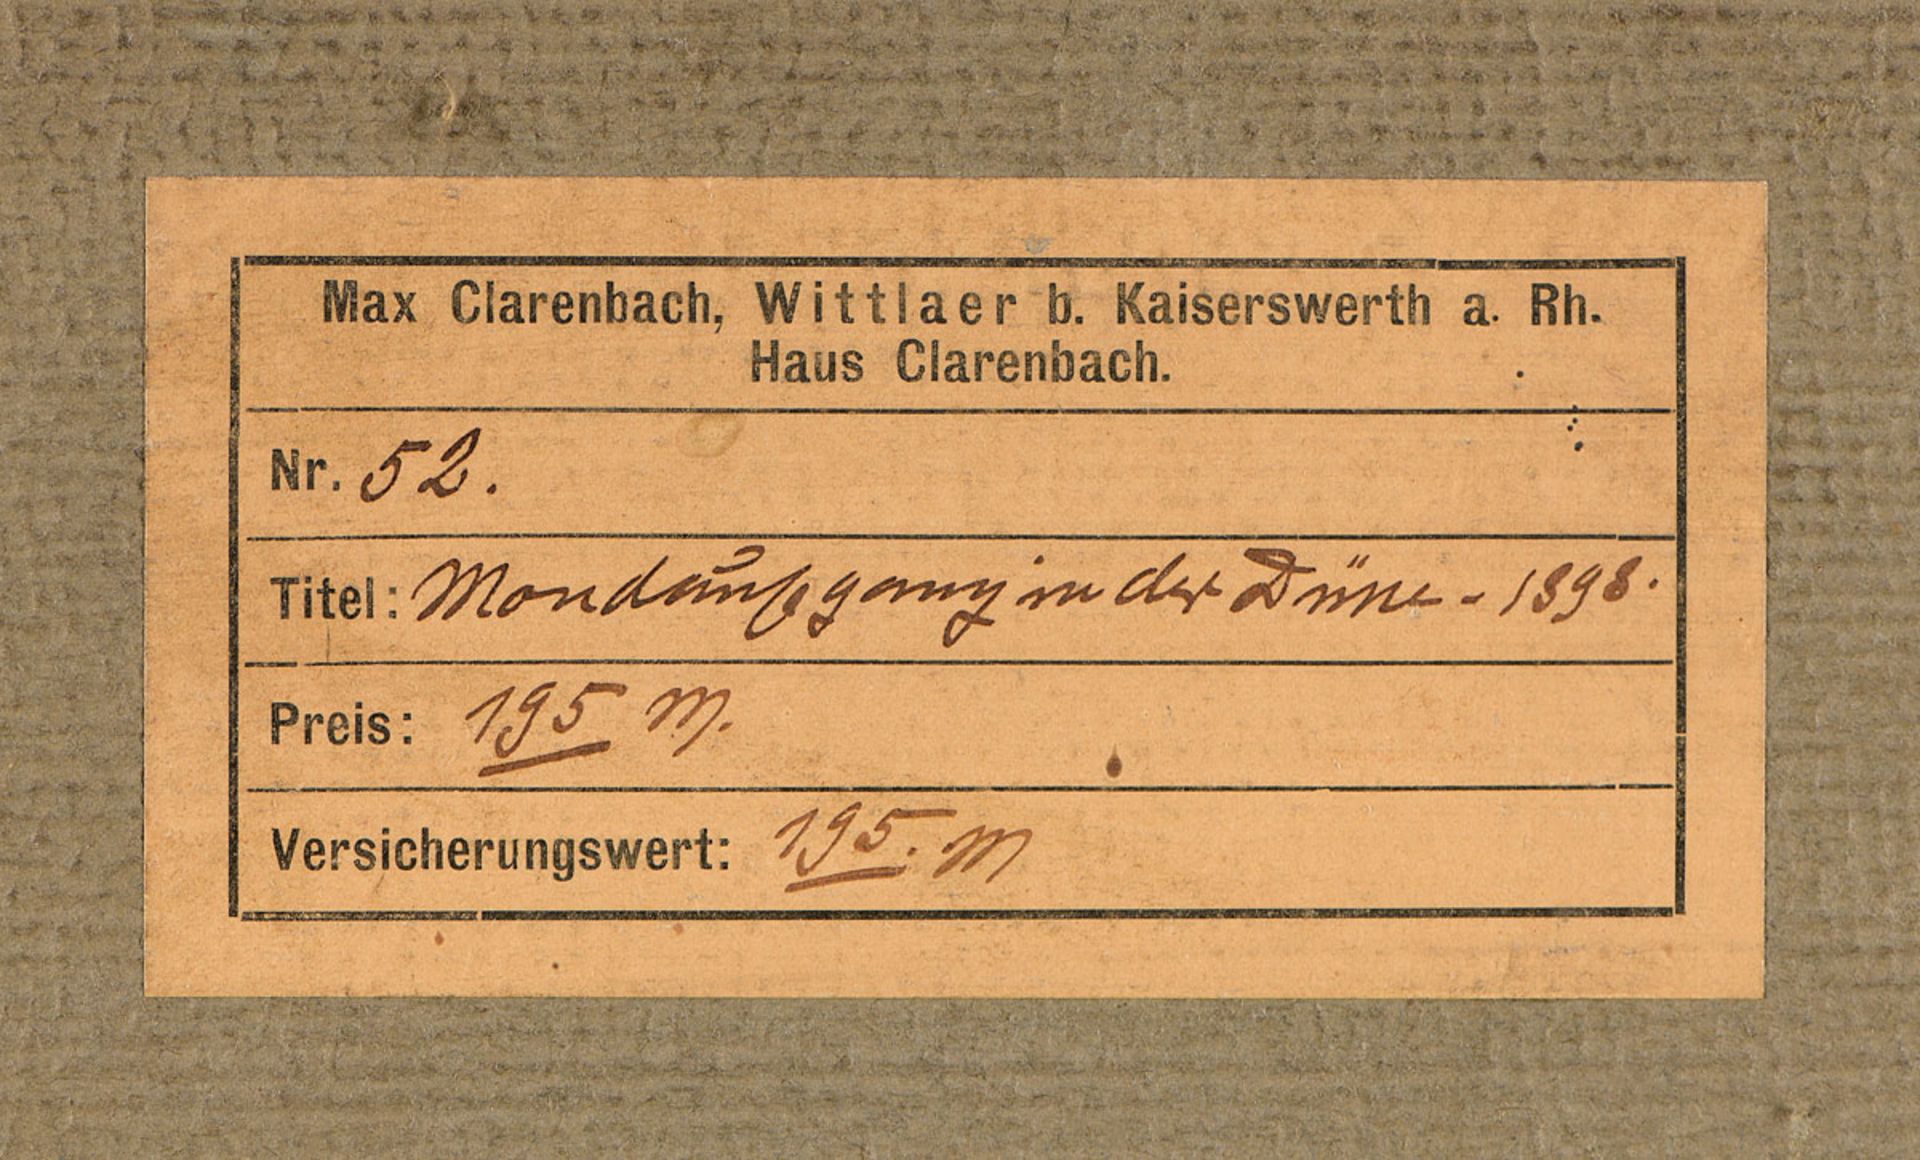 Max Clarenbach, Wittlaer b. Kaiserswerth a. Rh.
Haus Clarenbach.
Nr. 52.
Titel: Mondaufgang in der Düne - 1898.
Preis: 195 M.
Versicherungswert: 195. M